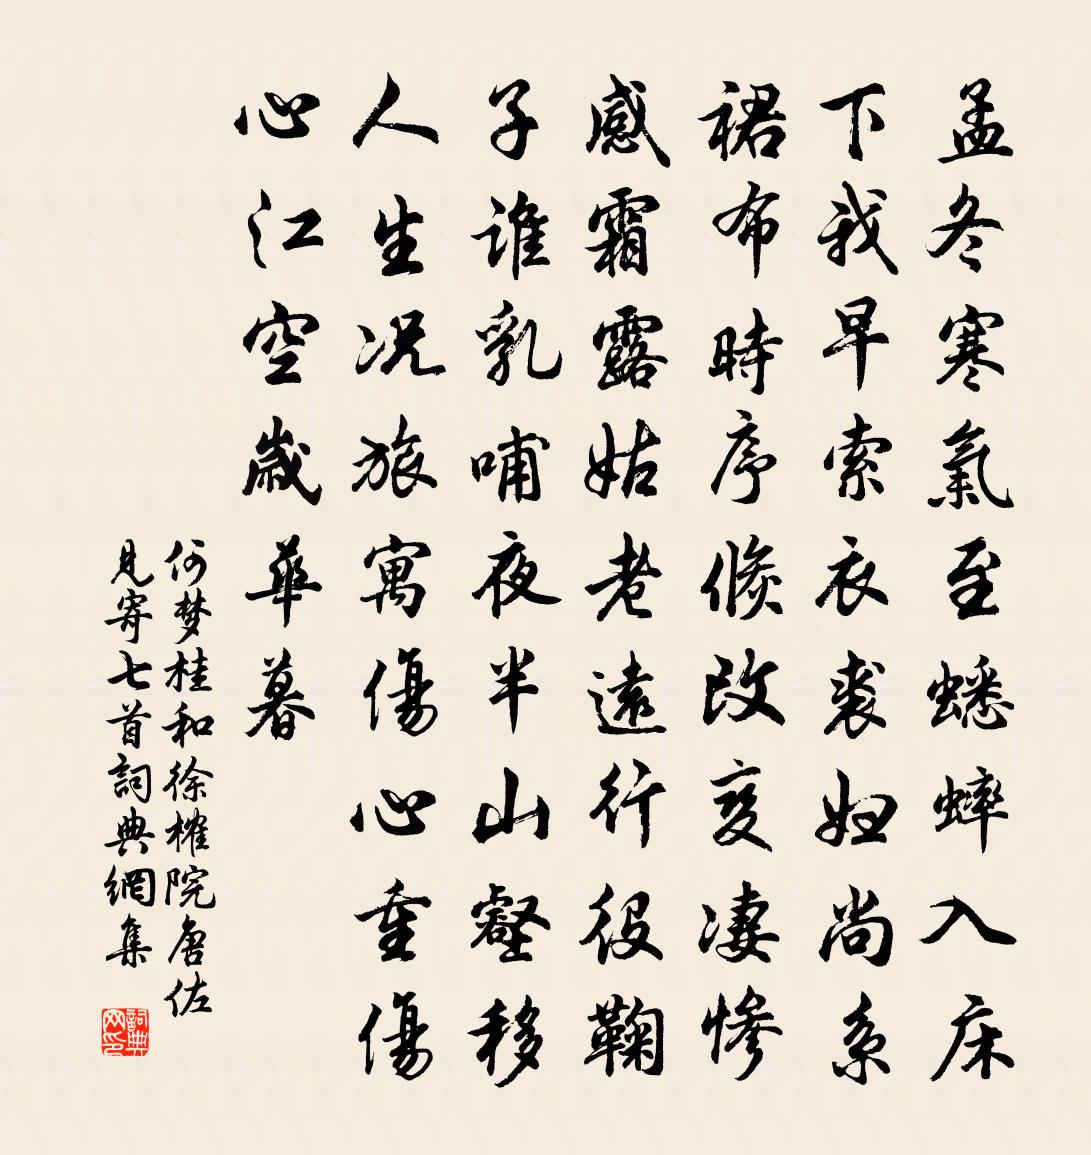 孟冬寒氣至蟋蟀入床
下我早索衣裘妇尚系
裙布時序倏改变淒惨
感霜露姑老遠行役鞠
子谁乳哺夜半山壑移
人生况旅寓傷心重傷
心江空歲華暮
何梦桂和徐榷院唐佐
見寄七首詞典網集
詞典网印